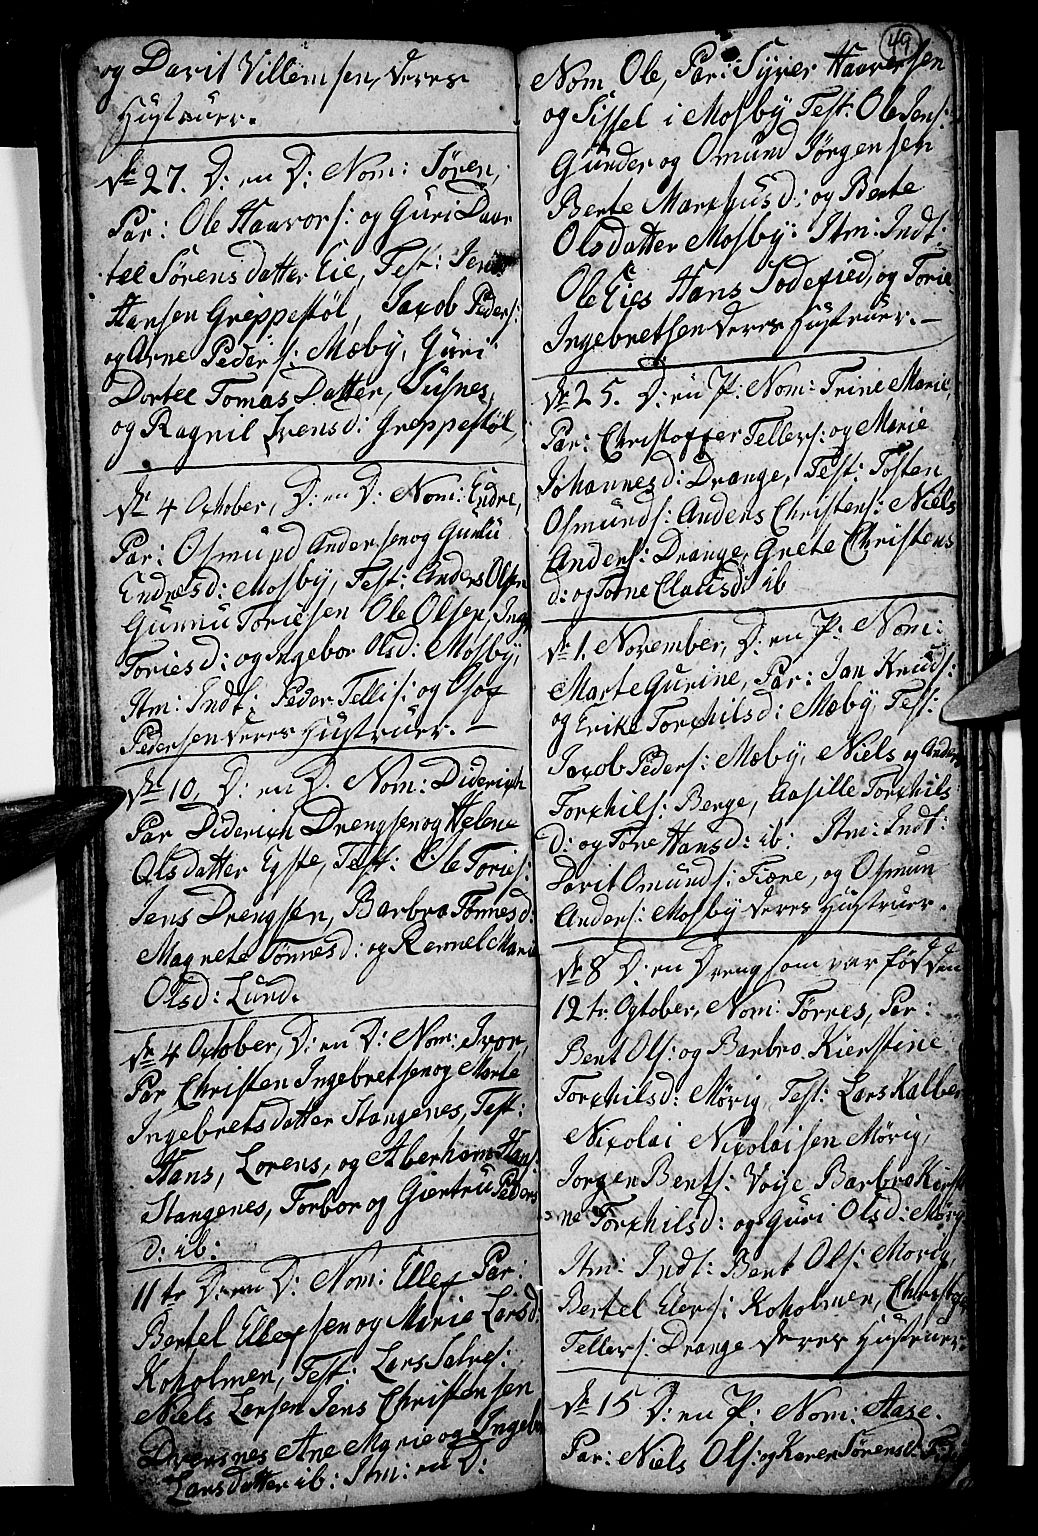 og Davit Villemsen, deres
Hustruer.
Dr 27. D: en D: Nom: Søren,
Par: Ole Haavors: og Guri Daar
tee Sørensdatter Eie, Test: Jens
Hansen Greppestøl, Jacob Peders:
og Arne Peders: Mæby, Guri
Dortee Tomas Datter,
og Ragnil Ivensd: Greppestøl,
Dr 4 October, D: en D: Nom: Endre,
Par: Osmund Andersen og Gunnu
Endresd: Mosby, Test: Anders Olsen
Gunnu Toriesen Ole Olsen, Ing
Toriesd: og Ingebor Olsd: Mosby,
Itm: Indt: Peder Tellis: og Osay
Pedersen deres Hustruer. —
Dr 10, D: en D. Nom: Diderich
Par Diderich Drengsen og Helene
Olsdatter Egste, Test: Ole Tories:
Jens Drengssen, Barbro Tønnesd:
Magnete Tønnesd: og Rennel Marie
Olsd: Lund.
Dr 4 October, D: en D: Nom: Ivor,
Par Christen Ingebretsen og Marte
Ingebretsdatter Stangenes, Test:
Hans, Lorens, og Aberham Hans:
Stangenes, Torbor og Giertru Peders
d: ib:
11te D: en D: Nom: Ellef Par:
Bertel Ellefsen og Marie Larsd:
Koholmen, Test: Lars Salves:
Niels Larsen Jens Christensen
Dversnes Ane Marie og Ingebor
Larsdatter ib: Itm: en D:
49
Nom Ole, Par: Syver Haaversen
og Sissel i Mosby Test: Ole Jens:
Gunder og Omund Jørgensen
Berte Marchusd: og Berte
Olsdatter Mosby: Itm: Indt:
Ole Eies Hans Dodefied, og Torie
Ingebretsen deres Hustruer. —
Dr 25. D: en P: Nom: Trine Marie,
Par: Christoffer Tellers: og Marie
Johannesd: Drange, Test: Tosten
Osmunds: Anders Christens: Niels
Anders: Drange, Grete Christens
d: og Tone Clausd: ib
Dr 1. November, D: en P: Nom:
Marte Gurine, Par: Jan Knuds:
og Erike Torchilsd: Mæby, Test:
Jacob Peders: Mæby, Niels og Anders
Torchils: Berge, Aasille Torchils
D: og Tone Hansd: ib: Itm: Indt:
Davit Omunds: Fiære, og Osmun
Anders: Mosby deres Hustruer.
Dr 8 D: en Dreng som var fød den
12te Ogtober, Nom: Tørres, Par:
Bent Ols: og Barbro Kierstine
Torchilsd: Mørig, Test: Lars Kalber
Nicolai Nicolaisen Mørig,
Jørgen Bents: Voje Barbro Kiersti
ne Torchilsd: og Guri Olsd: Mørig
Itm: Indt: Bent Ols: Mørig,
Bertel Elers: Koholmen, Christofer
Tellers: Drange deres Hustruer.
Dr 15 D: en P: Nom: Aase.
Par: Niels Ols: og Karen Sørensd: